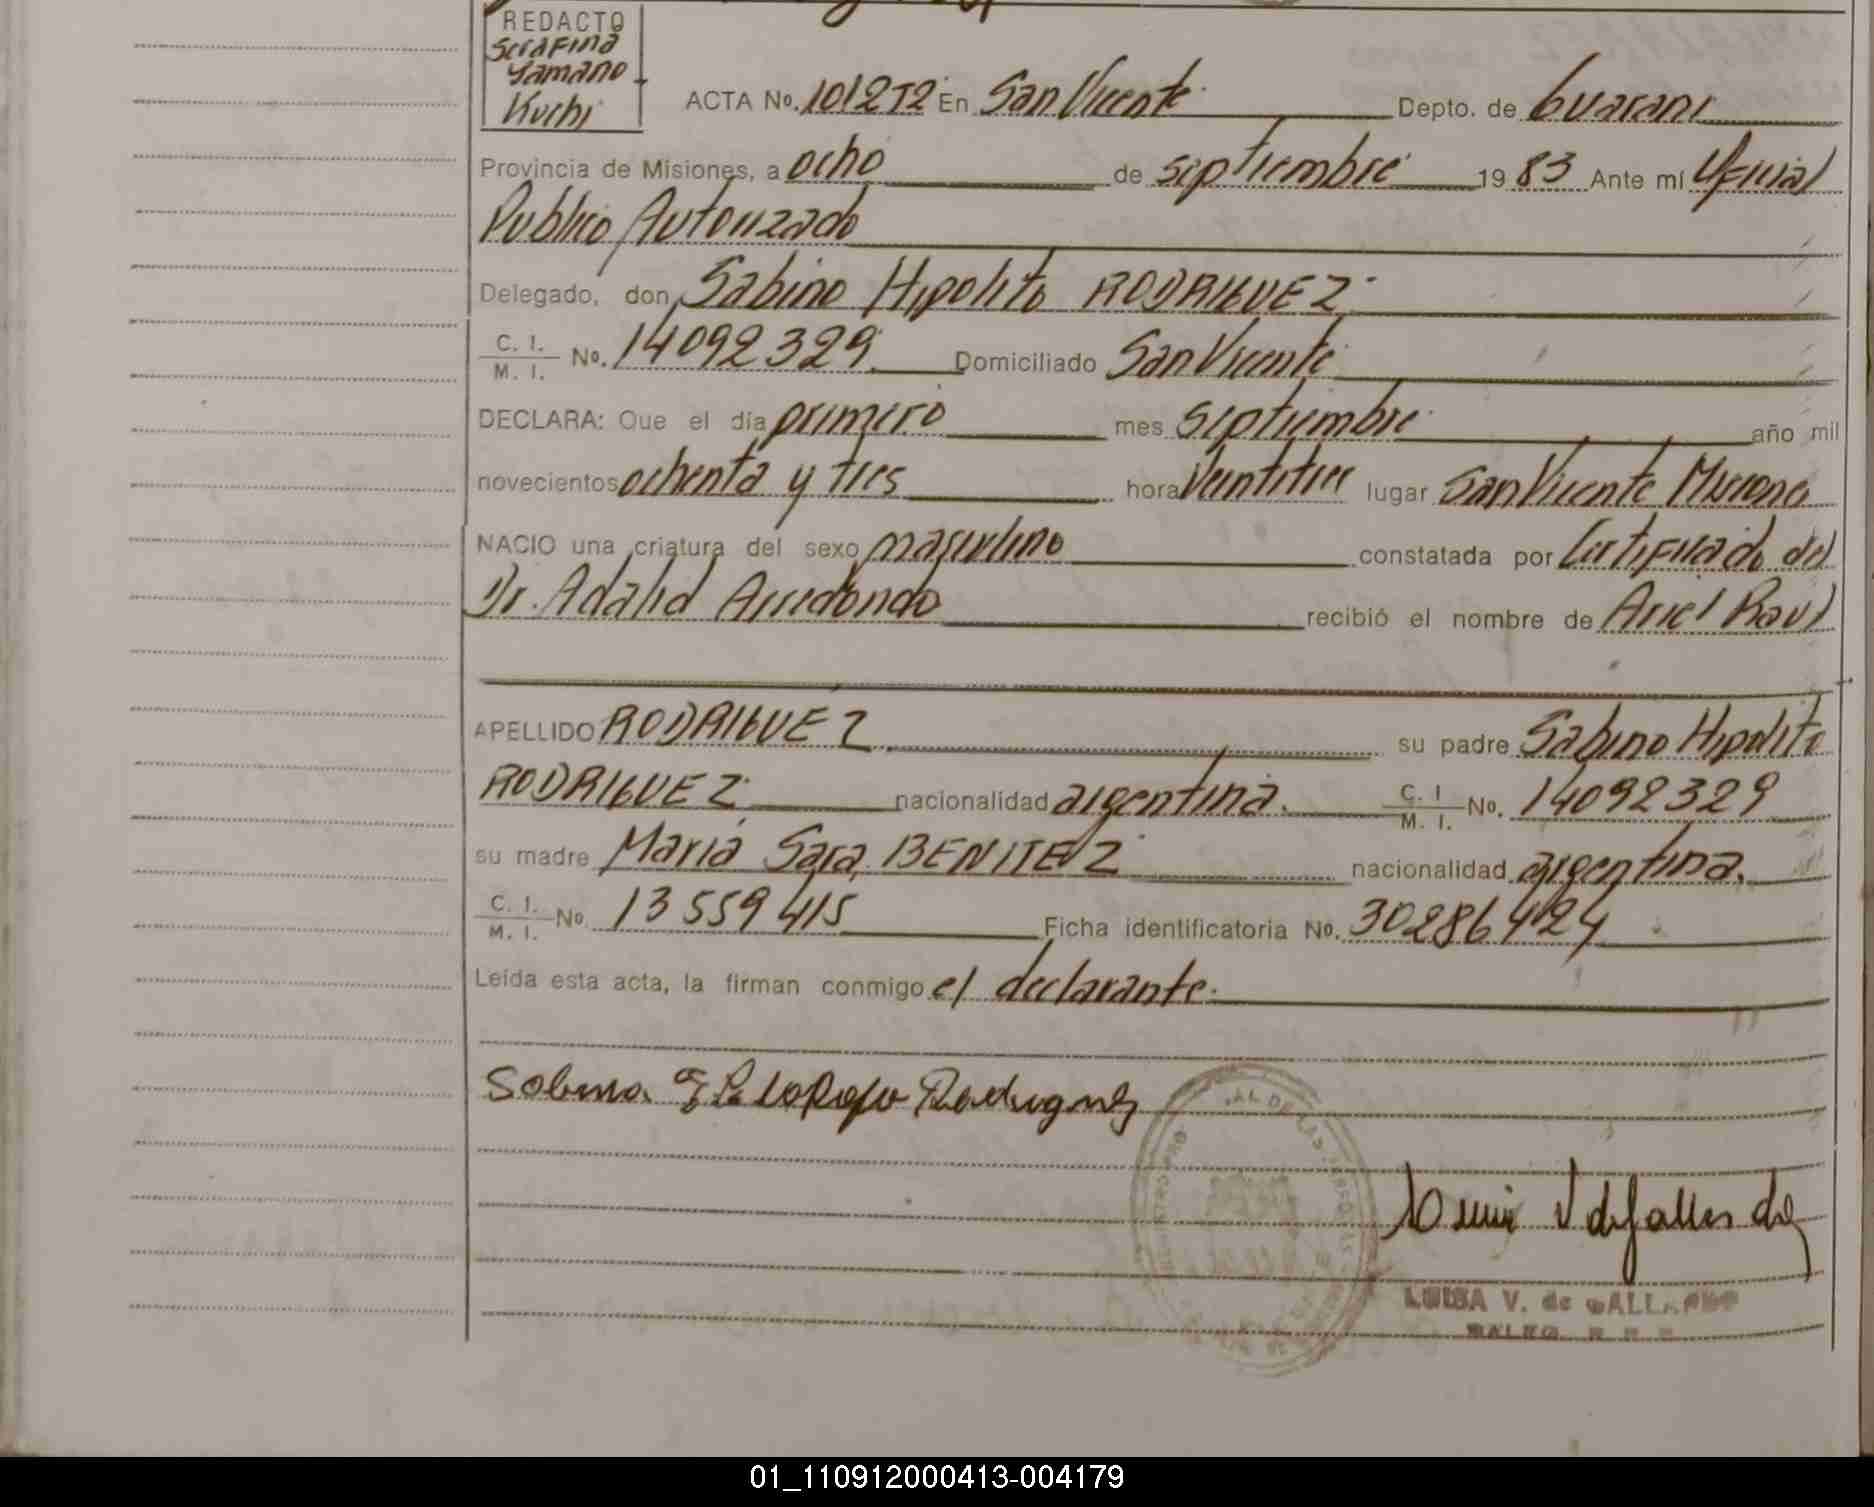 REDACTO
Serafina
Yamano
Kuchi
ACTA No. 1012T2 En San Vicente Depto. de Guarani
Provincia de Misiones, a ocho de septiembre 19 83 Ante mí Oficial
Publico Autorizado
Delegado, don Sabino Hipolito RODRIGUEZ
C. I. / M. I. No. 14092329 Domiciliado San Vicente
DECLARA: Que el día primero mes septiembre año mil
novecientos ochenta y tres hora Veintitres lugar San Vicente Misiones
NACIO una criatura del sexo masculino constatada por Certificado del
Dr. Adalid Arredondo recibió el nombre de Ariel Raul
APELLIDO RODRIGUEZ su padre Sabino Hipolito
RODRIGUEZ nacionalidad argentina. C. I / M. I. No. 14092329
su madre Maria Sara BENITEZ nacionalidad argentina.
C. I. / M. I. No. 13559415 Ficha identificatoria No. 30286424
Leída esta acta, la firman conmigo el declarante.
Rodriguez
LUISA V. de GALLARDO
01_110912000413-004179